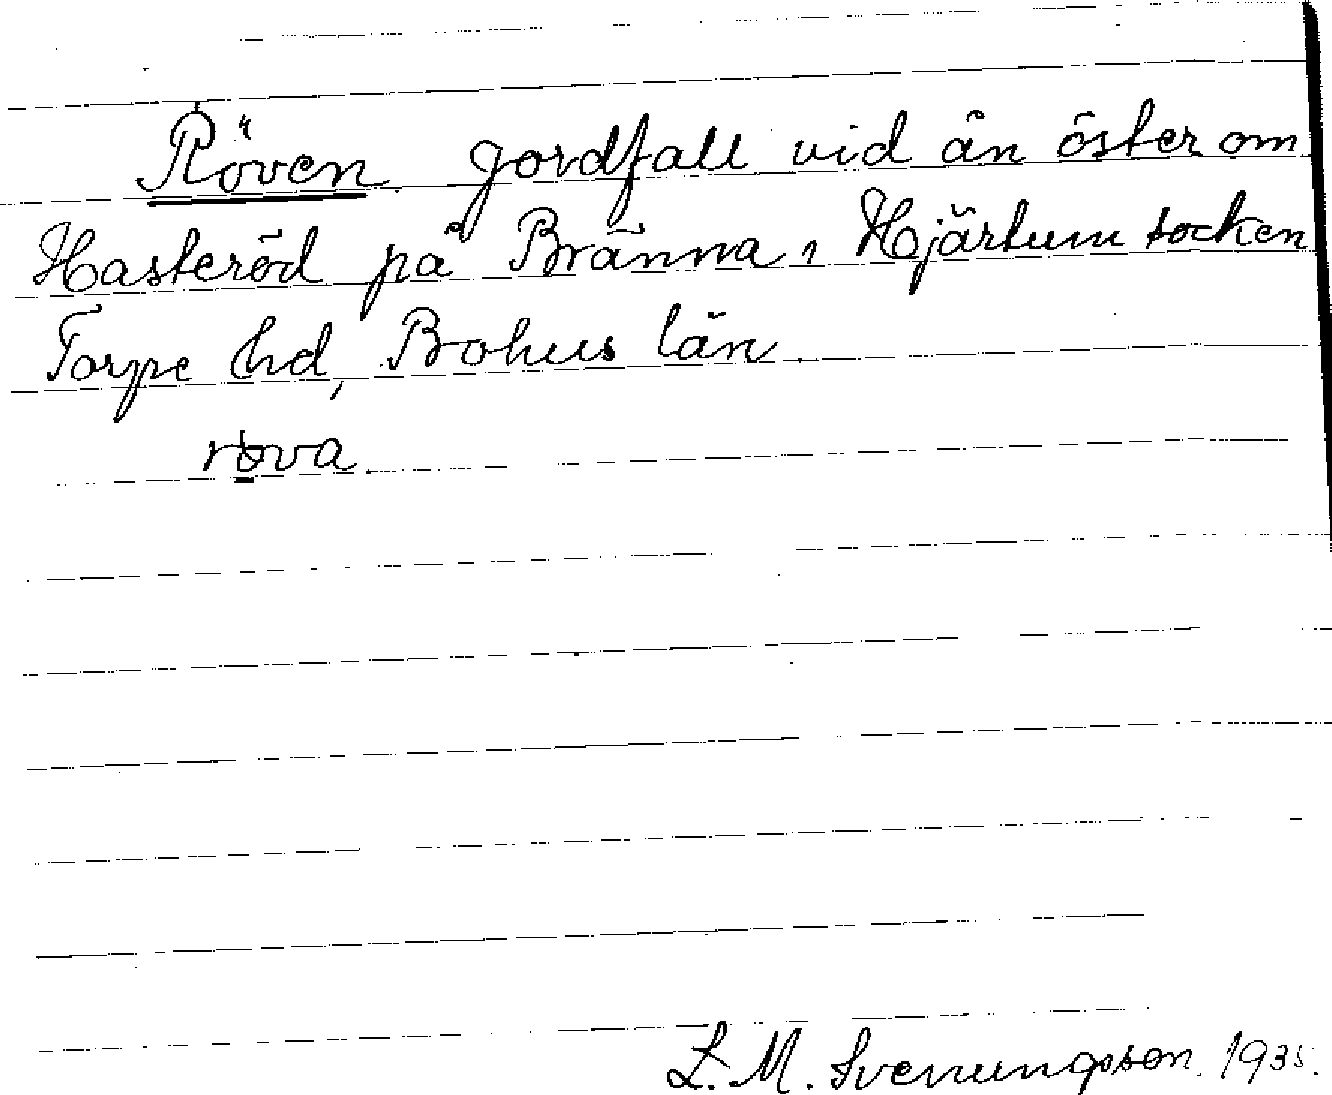 Röven gordfall vid ån öster om
Hasteröd på Bränna, Hjärtum socken
Torpe hd, Bohus län.
röva
L. M. Svenungsson. 1935.